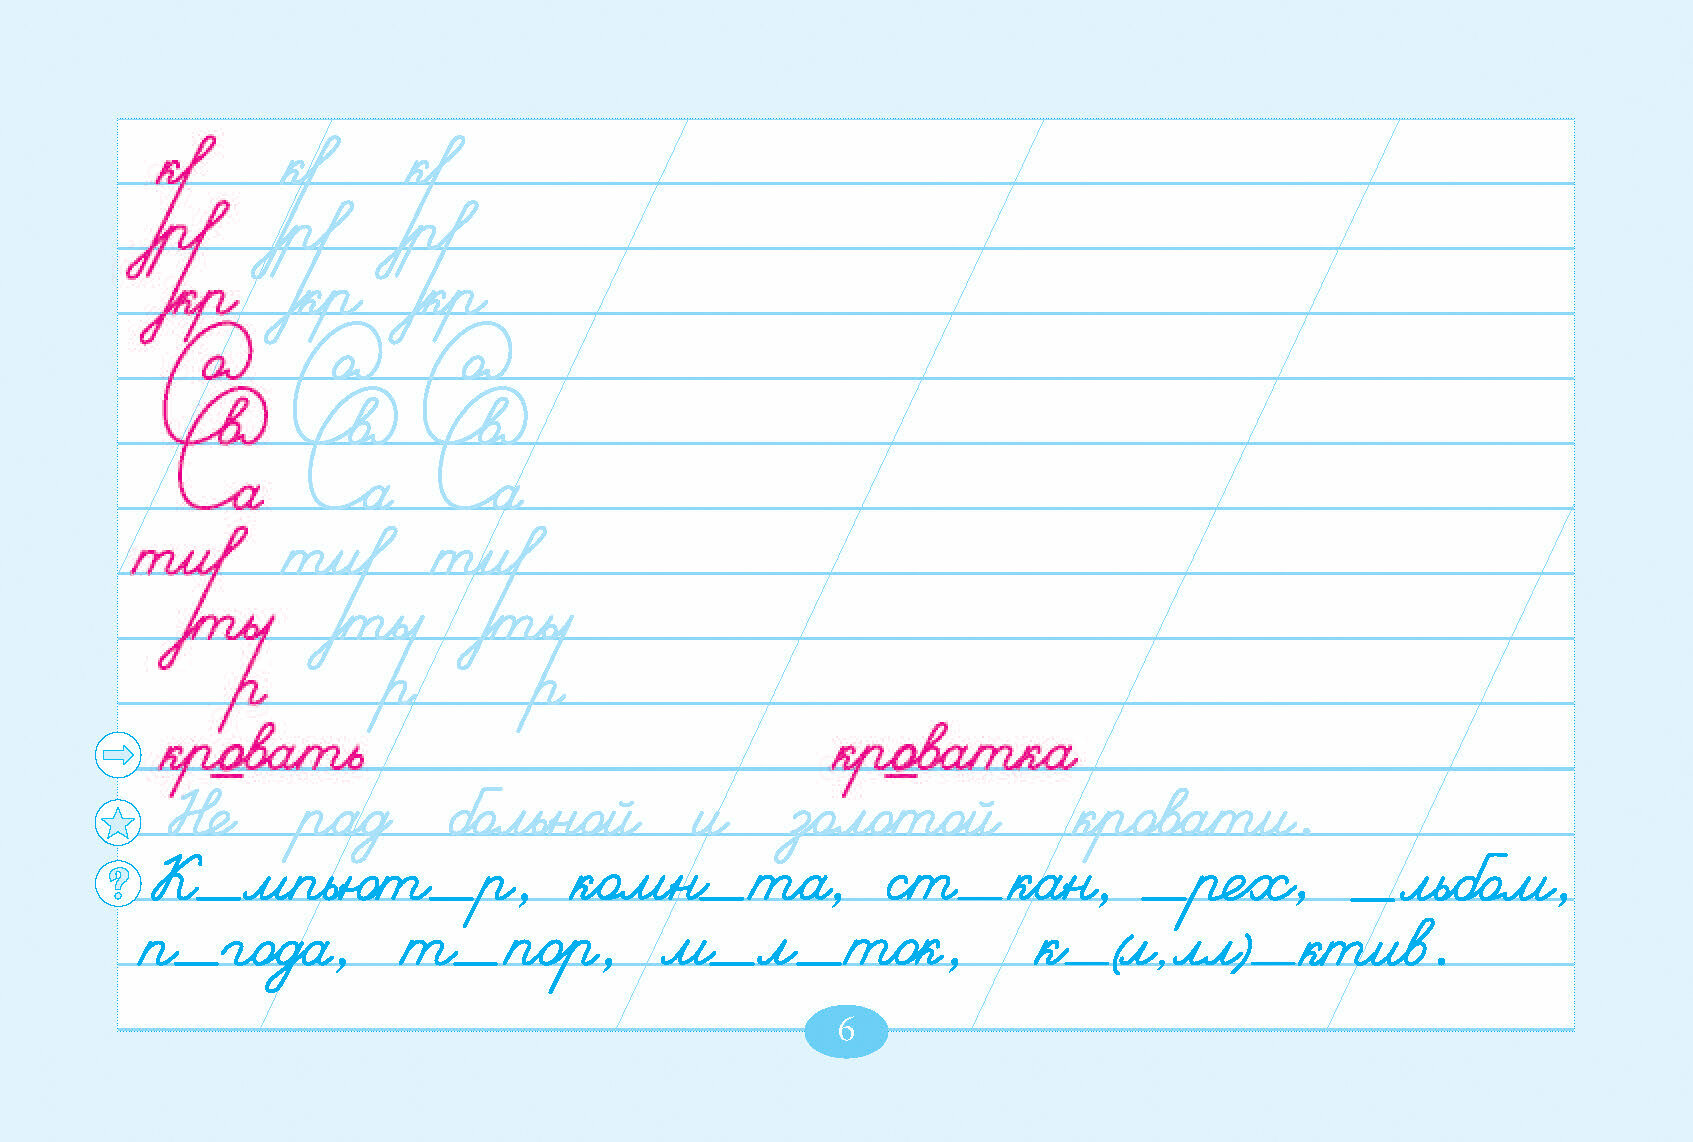 кв кв кв
рр рр рр
кр кр кр
Со Со Со
Св Св Св
Са Са Са
тив тив тив
ты ты ты
р р р
кровать кроватка
Не рад больной и золотой кровати.
К_мпьют_р, комн_та, ст_кан, _рех, _льбом,
п_года, т_пор, м_л_ток, к_(л,лл)_ктив.
6